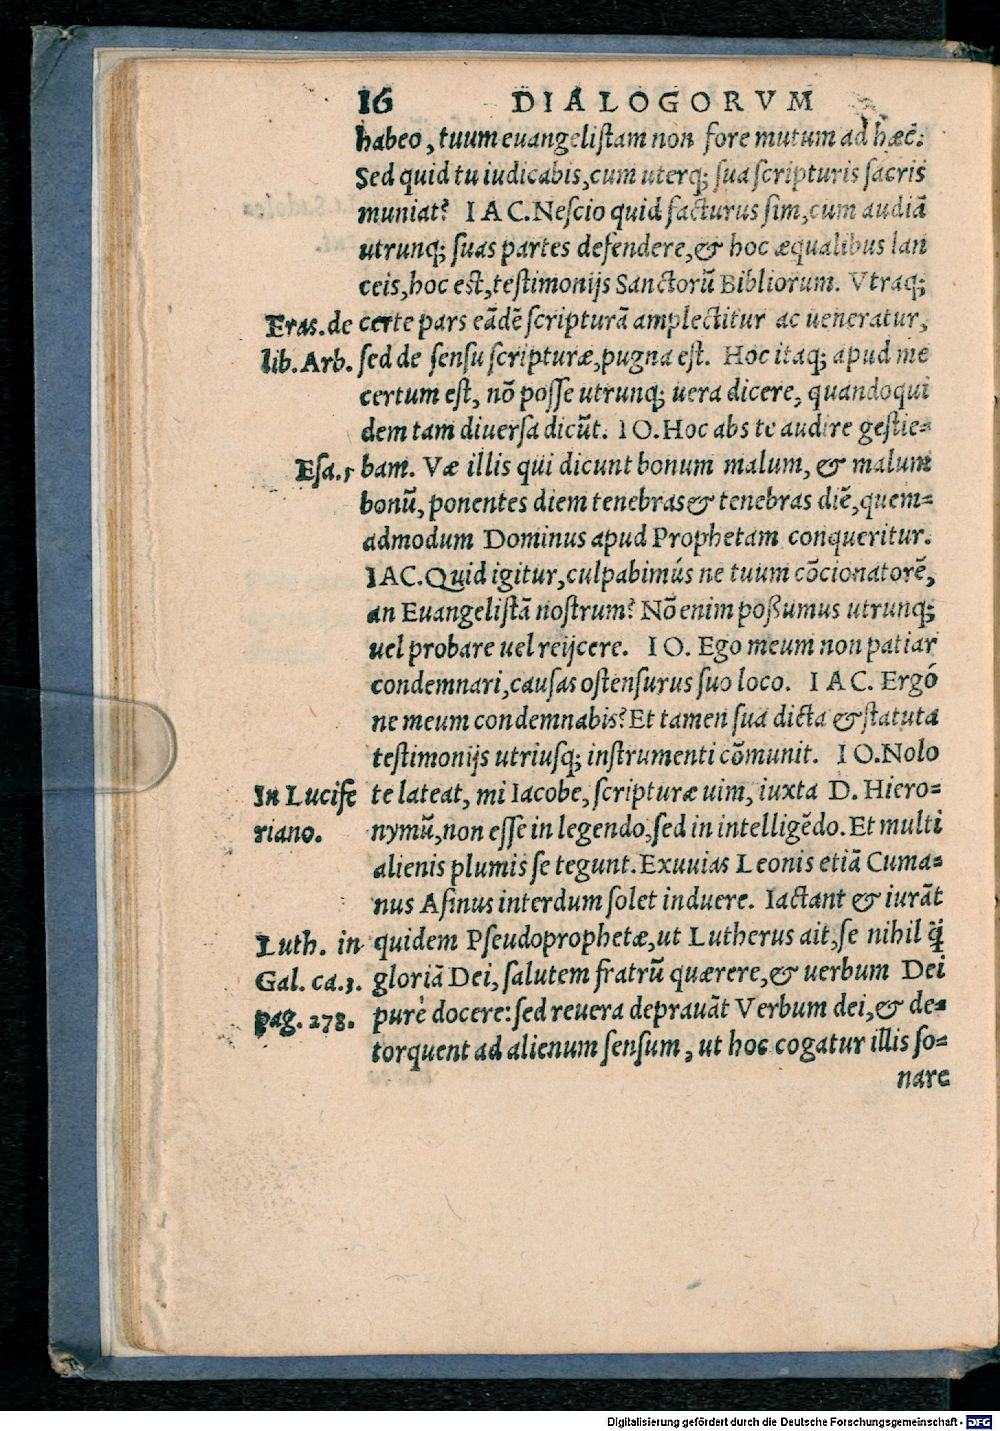 16 DIALOGORVM
habeo, tuum euangelistam non fore mutum ad hæc.
Sed quid tu iudicabis, cum uterq; sua scripturis sacris
muniat? IAC. Nescio quid facturus sim, cum audiā
utrunq; suas partes defendere, & hoc æqualibus lan
ceis, hoc est, testimonijs Sanctorū Bibliorum. Vtraq;
Eras. de certe pars eādē scripturā amplectitur ac ueneratur,
lib. Arb. sed de sensu scripturæ, pugna est. Hoc itaq; apud me
certum est, nō posse utrunq; uera dicere, quandoqui
dem tam diuersa dicūt. IO. Hoc abs te audire gestie=
Esa. 5 bam. Væ illis qui dicunt bonum malum, & malum
bonū, ponentes diem tenebras & tenebras diē, quem=
admodum Dominus apud Prophetam conqueritur.
IAC. Quid igitur, culpabimús ne tuum cōcionatorē,
an Euangelistā nostrum? Nō enim poßumus utrunq;
uel probare uel reijcere. IO. Ego meum non patiar
condemnari, causas ostensurus suo loco. IAC. Ergó
ne meum condemnabis? Et tamen sua dicta & statuta
testimonijs utriusq; instrumenti cōmunit. IO. Nolo
In Lucife te lateat, mi Iacobe, scripturæ uim, iuxta D. Hiero=
riano. nymū, non esse in legendo, sed in intelligēdo. Et multi
alienis plumis se tegunt. Exuuias Leonis etiā Cuma=
nus Asinus interdum solet induere. Iactant & iurāt
Luth. in quidem Pseudoprophetæ, ut Lutherus ait, se nihil q̄
Gal. ca. 3. gloriā Dei, salutem fratrū quærere, & uerbum Dei
pag. 278. purè docere: sed reuera deprauāt Verbum dei, & de=
torquent ad alienum sensum, ut hoc cogatur illis so=
nare
Digitalisierung gefördert durch die Deutsche Forschungsgemeinschaft - DFG